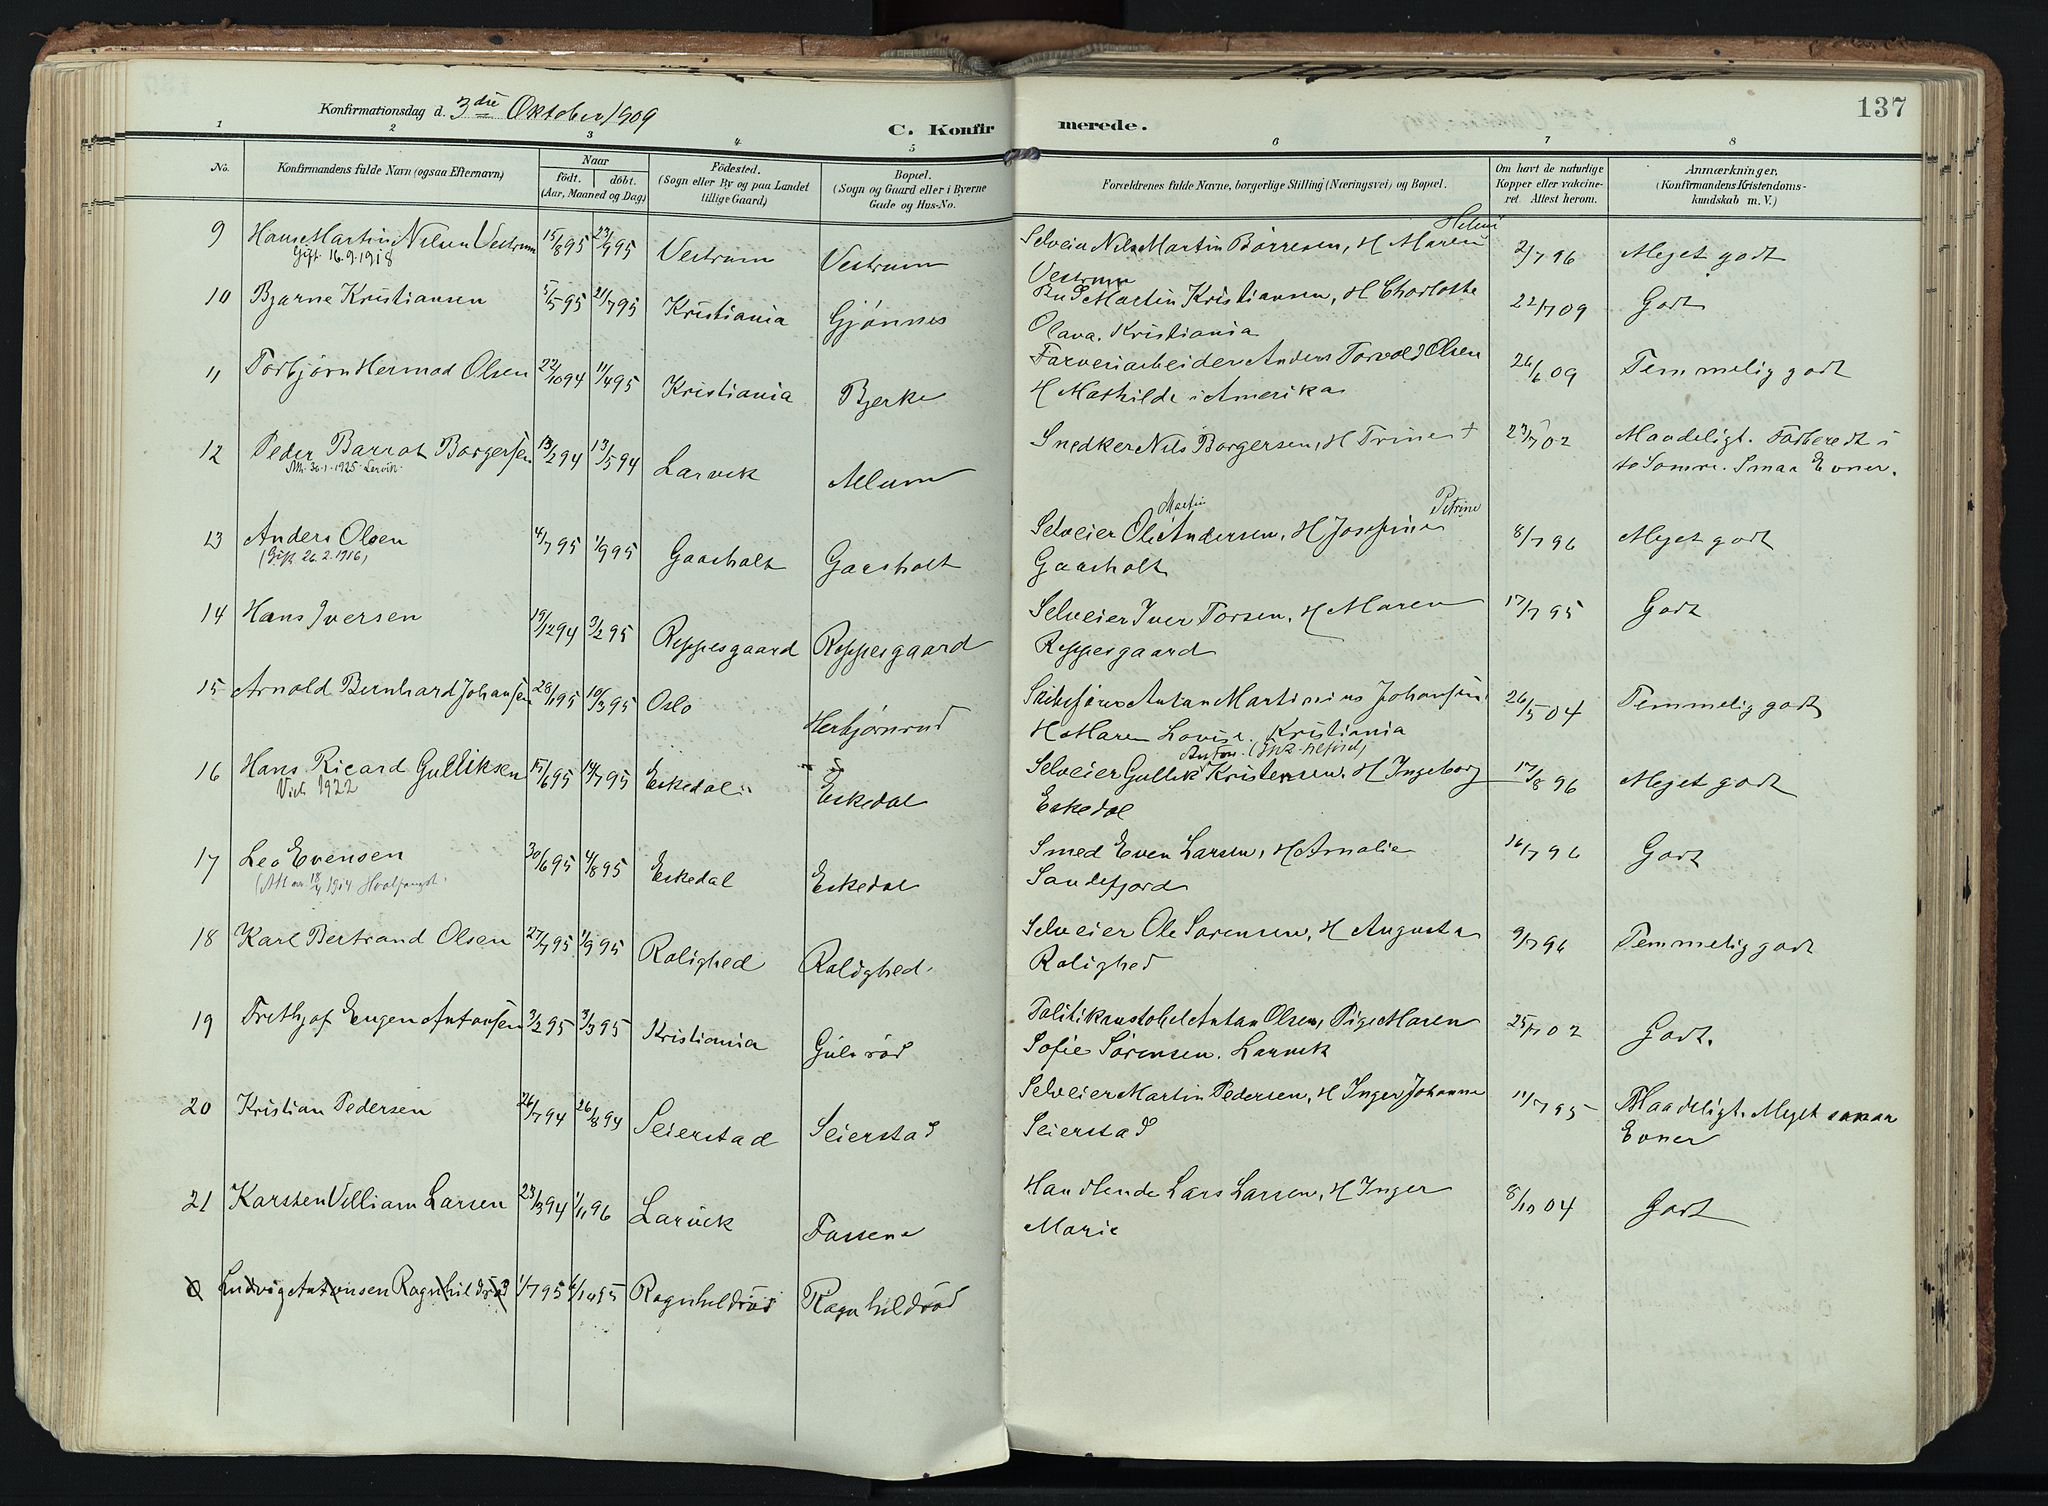 137
Konfirmationsdag d. 3die Oktober 1909
C. Konfirmerede.
1 2 3 4 5 6 7 8
No. Konfirmandens fulde Navn (ogsaa Efternavn) Naar født. døbt. (Aar, Maaned og Dag) Fødested. (Sogn eller By og paa Landet tillige Gaard) Bopæl. (Sogn og Gaard eller i Byerne Gade og Hus-No. Forældrenes fulde Navne, borgerlige Stilling (Næringsvei) og Bopæl. Om havt de naturlige Kopper eller vakcineret. Attest herom. Anmærkninger, (Konfirmandens Kristendomskundskab m. V.)
9 Hans Martin Nilsen Vestrum 15/8 95 29/9 95 Vestrum Vestrum Selveier Nils Martin Børresen, H Maren Helene 2/7 96 Meget godt
Gift 16.9.1918 Vestrum
10 Bjarne Kristiansen 5/5 95 21/7 95 Kristiania Gjønnes Martin Kristiansen, H Charlotte 22/7 09 Godt
Olava. Kristiania
11 Torbjørn Hermod Olsen 22/10 94 11/4 95 Kristiania Bjerke Farveriarbeider Anders Torvold Olsen 26/6 09 Temmelig godt
H Mathilde i Amerika
12 Peder Barrot Borgersen 13/2 94 13/5 94 Larvik Allum Snedker Nils Borgersen, H Trine + 29/7 02 Maadeligt. Forberedt i
30.1.1925 Larvik. to Somre. Smaa Evner.
13 Anders Olsen 4/7 95 1/9 95 Gaasholt Gaasholt Selveier Ole Martin Andersen, H Josefine Petrine 8/7 96 Meget godt
(Gift 26.2.1916) Gaasholt
14 Hans Iversen 19/12 94 3/2 95 Reppesgaard Reppesgaard Selveier Iver Torsen, H Maren 17/7 95 Godt
Reppesgaard
15 Arnold Bernhard Johansen 28/1 95 10/3 95 Oslo Herbjørnrud Antan Martinius Johansen, 26/5 04 Temmelig godt
H Maren Lovise. Kristiania
16 Hans Ricard Gulliksen 15/6 95 14/7 95 Eskedal Eskedal Selveier Gullik Anton Kristensen, H Ingeborg 17/8 96 Meget godt
1922 Eskedal
17 Leo Evensen 30/6 95 4/8 95 Eskedal Eskedal Smed Even Larsen, H Amalie 16/7 96 Godt
(Att. 18/4 1914 Hvalfangst. Sandefjord
18 Karl Bertrand Olsen 27/7 95 1/9 95 Rolighed Rolighed. Selveier Ole Sørensen, H Augusta 9/7 96 Temmelig godt
Rolighed
19 Frithjof Eugen Antonsen 3/2 95 3/3 95 Kristiania Gulsrød Politikonstabel Antan Olsen, Pige Maren 25/7 02 Godt.
Sofie Sørensen. Larvik
20 Kristian Pedersen 26/7 94 26/8 94 Seierstad Seierstad Selveier Martin Pedersen, H Inger Johanne 11/7 95 Maadeligt. Meget smaa
Seierstad Evner
21 Karsten Villiam Larsen 23/3 94 1/11 96 Larvik Fossene Handlende Lars Larsen, H Inger 8/10 04 Godt
Marie
0 Ludvig Antonsen Ragnhildrød 1/7 95 6/10 95 Ragnhildrød Ragnhildrød